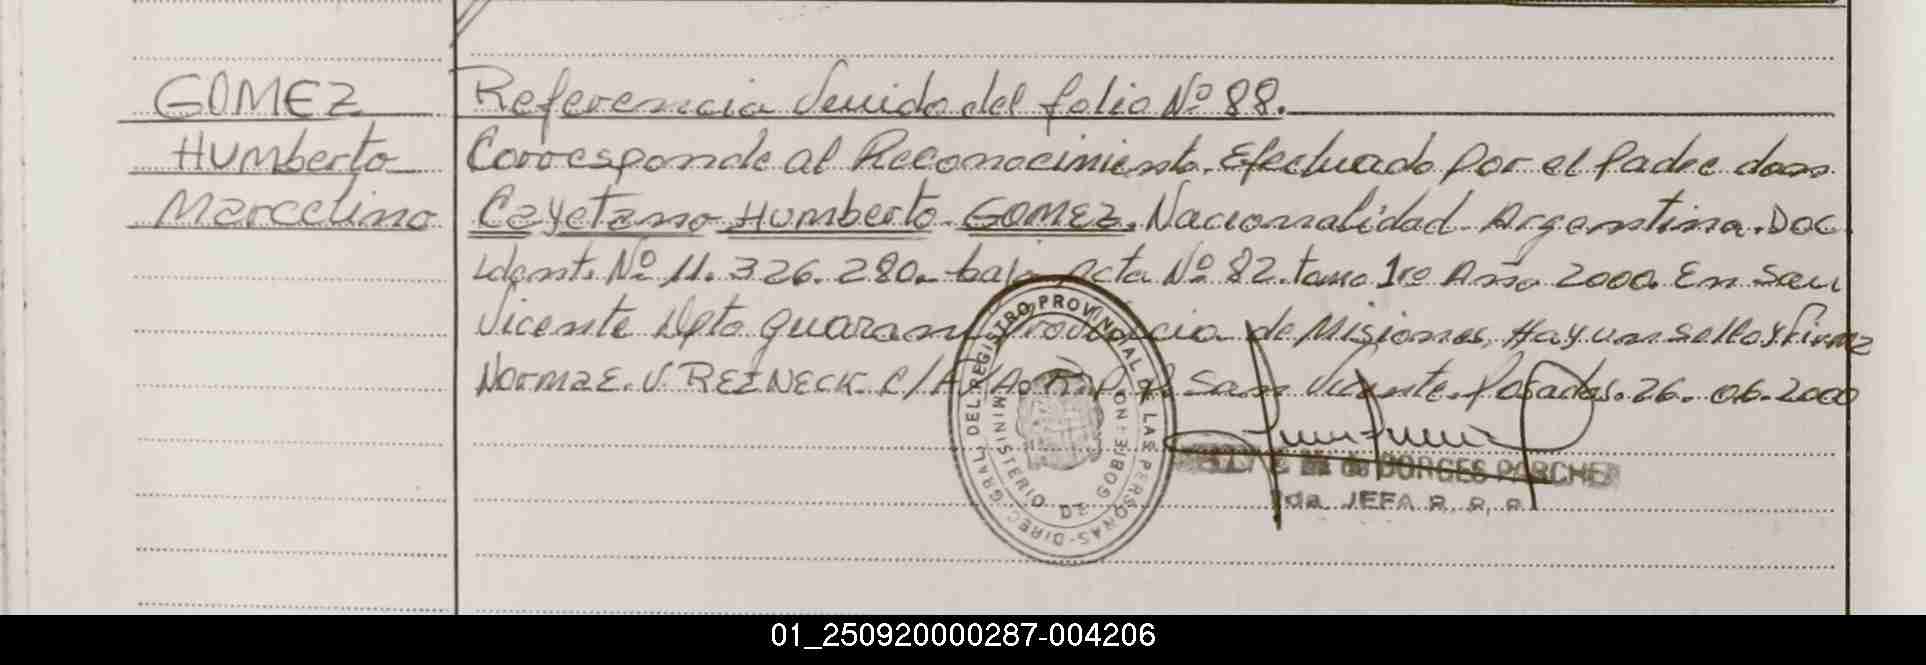 GOMEZ
Humberto
Marcelino
Referencia Venido del folio Nº 88.
Corresponde al Reconocimiento. Efectuado por el Padre don
Cayetano Humberto GOMEZ. Nacionalidad Argentina. Doc
Ident. Nº 11.326.280. bajo Acta Nº 82. tomo 1ro Año 2000. En San
Vicente Dpto Guarani Provincia de Misiones, Hay un sello y Firma
Norma E. V. REZNECK. C/A San Vicente. Posadas. 26. 06. 2000
DIREC. GRAL. DEL REGISTRO PROVINCIAL DE LAS PERSONAS
MINISTERIO DE GOBIERNO
BORGES PARCHEN
2da. JEFA R. P. P.
01_250920000287-004206